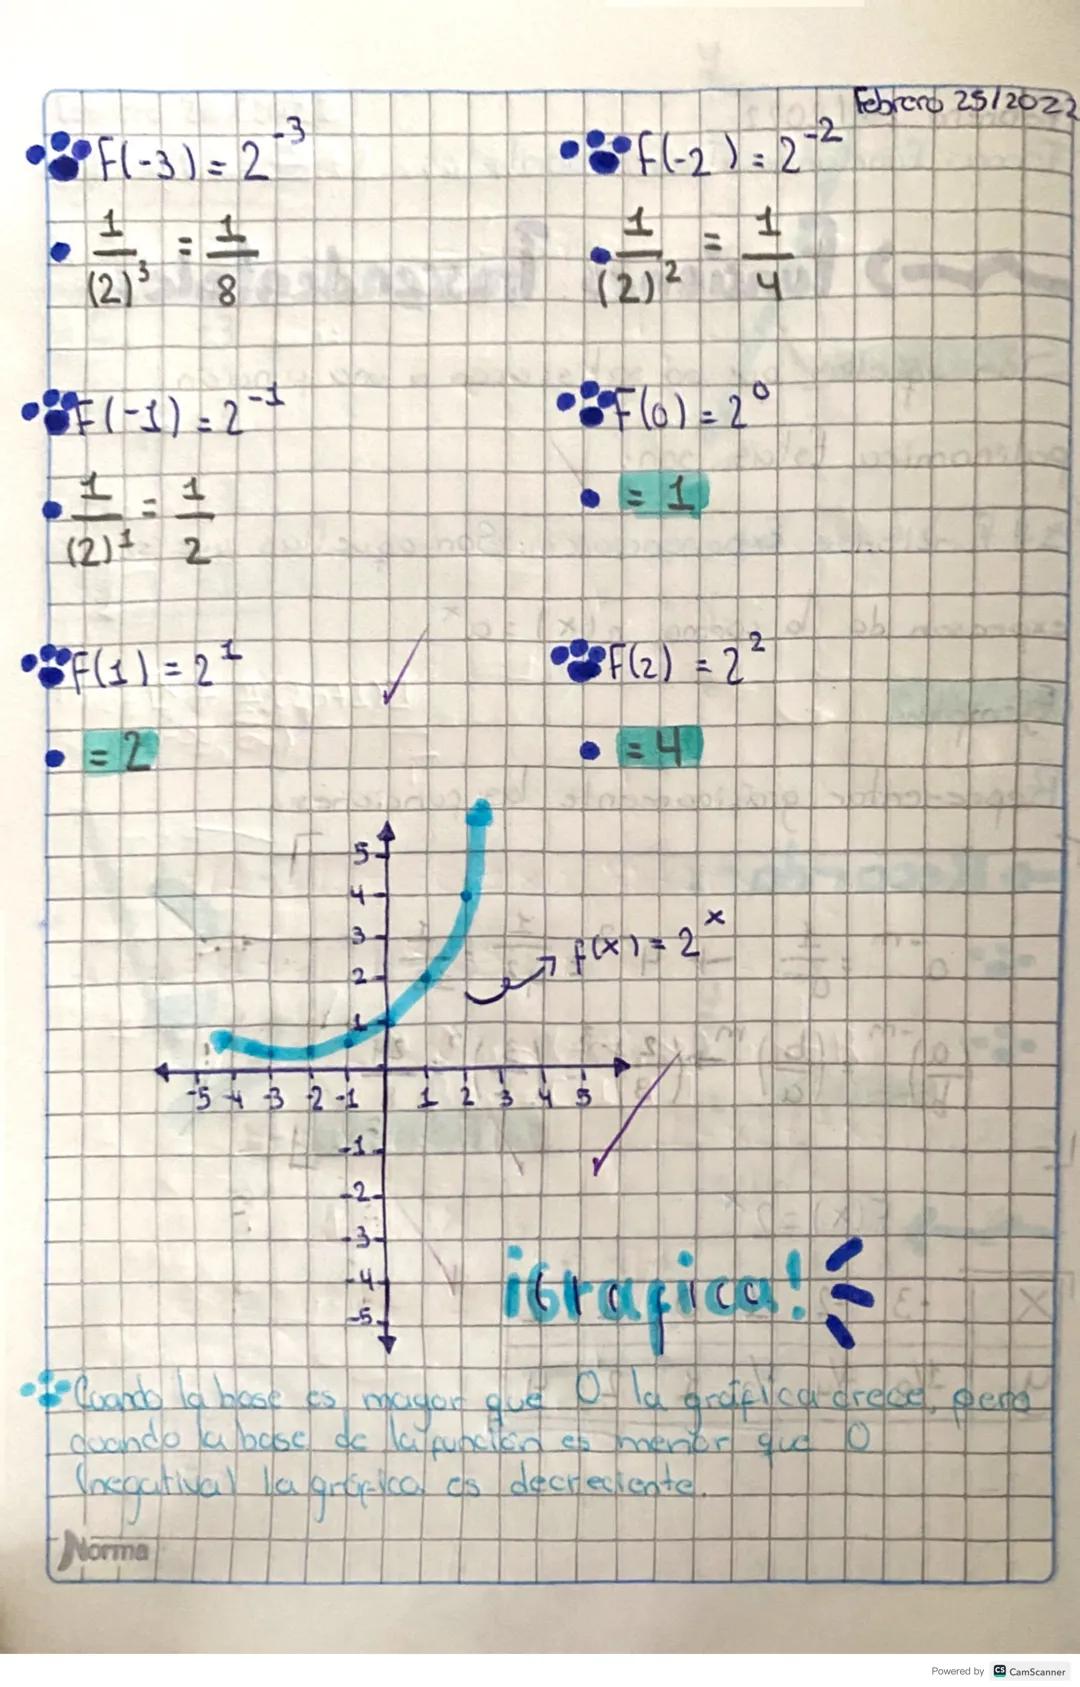 Febrero 25/2022
F(-3) = 2⁻³
F(-2) = 2⁻²
1/(2)³ = 1/8
1/(2)² = 1/4
F(-1) = 2⁻¹
F(0) = 2⁰
1/(2)¹ = 1/2
= 1
F(1) = 2¹
F(2) = 2²
= 2
= 4
5
4
3
2
1
f(x) = 2ˣ
-5 -4 -3 -2 -1 1 2 3 4 5
-1
-2
-3
-4
-5
¡Grafica!
Cuando la base es mayor que 0 la gráfica crece, pero
cuando la base de la función es menor que 0
(negativa) la gráfica es decreciente.
Norma
Powered by CS CamScanner